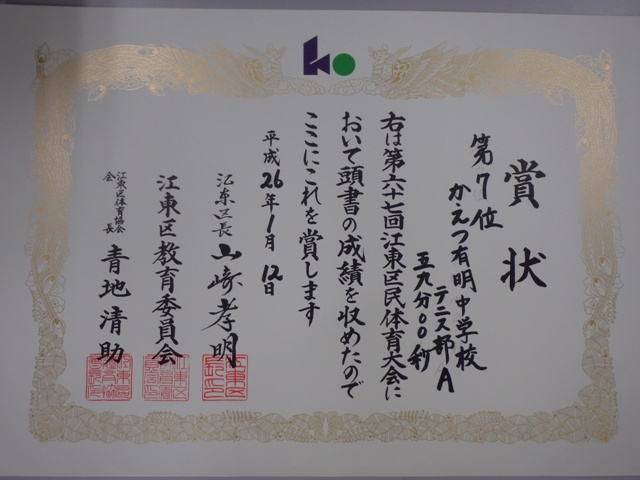 賞状
第7位
かえつ有明中学校
テニス部A
五九分00秒
右は第六十七回江東区民体育大会に
おいて頭書の成績を収めたので
ここにこれを賞します
平成26年1月12日
江東区長 山﨑孝明
江東区教育委員会
江東区体育協会
会長 青地清助